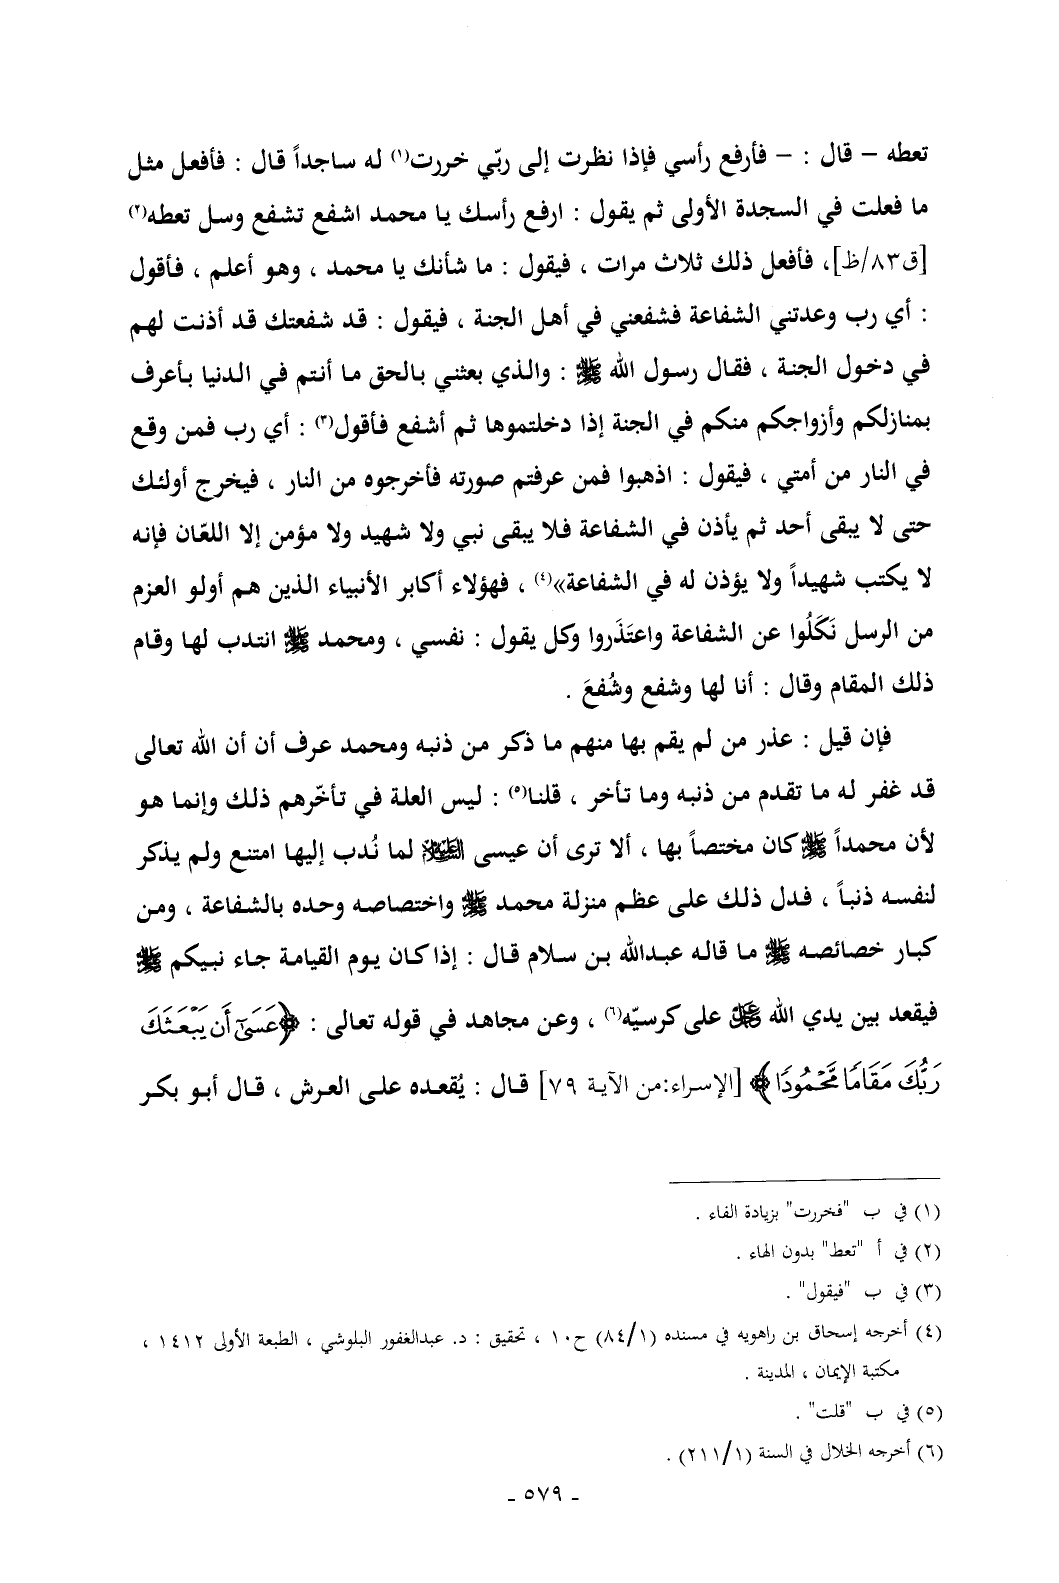 تعطه – قال : – فأرفع رأسي فإذا نظرت إلى ربّي خررت(١) له ساجداً قال : فأفعل مثل
ما فعلت في السجدة الأولى ثم يقول : ارفع رأسك يا محمد اشفع تشفع وسل تعطه(٢)
[ق٨٣/ظ]، فأفعل ذلك ثلاث مرات ، فيقول : ما شأنك يا محمد ، وهو أعلم ، فأقول
: أي رب وعدتني الشفاعة فشفعني في أهل الجنة ، فيقول : قد شفعتك قد أذنت لهم
في دخول الجنة ، فقال رسول الله ﷺ : والذي بعثني بالحق ما أنتم في الدنيا بأعرف
بمنازلكم وأزواجكم منكم في الجنة إذا دخلتموها ثم أشفع فأقول(٣) : أي رب فمن وقع
في النار من أمتي ، فيقول : اذهبوا فمن عرفتم صورته فأخرجوه من النار ، فيخرج أولئك
حتى لا يبقى أحد ثم يأذن في الشفاعة فلا يبقى نبي ولا شهيد ولا مؤمن إلا اللعّان فإنه
لا يكتب شهيداً ولا يؤذن له في الشفاعة»(٤) ، فهؤلاء أكابر الأنبياء الذين هم أولو العزم
من الرسل نَكَلُوا عن الشفاعة واعتَذَروا وكل يقول : نفسي ، ومحمد ﷺ انتدب لها وقام
ذلك المقام وقال : أنا لها وشفع وشُفعَ .
فإن قيل : عذر من لم يقم بها منهم ما ذكر من ذنبه ومحمد عرف أن أن الله تعالى
قد غفر له ما تقدم من ذنبه وما تأخر ، قلنا(٥) : ليس العلة في تأخّرهم ذلك وإنما هو
لأن محمداً ﷺ كان مختصاً بها ، ألا ترى أن عيسى العَلَيْهِ السَّلام لما نُدب إليها امتنع ولم يذكر
لنفسه ذنباً ، فدل ذلك على عظم منزلة محمد ﷺ واختصاصه وحده بالشفاعة ، ومن
كبار خصائصه ﷺ ما قاله عبدالله بن سلام قال : إذا كان يوم القيامة جاء نبيكم ﷺ
فيقعد بين يدي الله عَزَّ وَجَلَّ على كرسيّه(٦) ، وعن مجاهد في قوله تعالى : ﴿عَسَىٰٓ أَن يَبْعَثَكَ
رَبُّكَ مَقَامًا مَّحْمُودًا﴾ [الإسراء:من الآية ٧٩] قال : يُقعده على العرش ، قال أبو بكر
(١) في ب "فخررت" بزيادة الفاء .
(٢) في أ "تعط" بدون الهاء .
(٣) في ب "فيقول" .
(٤) أخرجه إسحاق بن راهويه في مسنده (٨٤/١) ح١٠ ، تحقيق : د. عبدالغفور البلوشي ، الطبعة الأولى ١٤١٢ ،
مكتبة الإيمان ، المدينة .
(٥) في ب "قلت" .
(٦) أخرجه الخلال في السنة (٢١١/١) .
- ٥٧٩ -